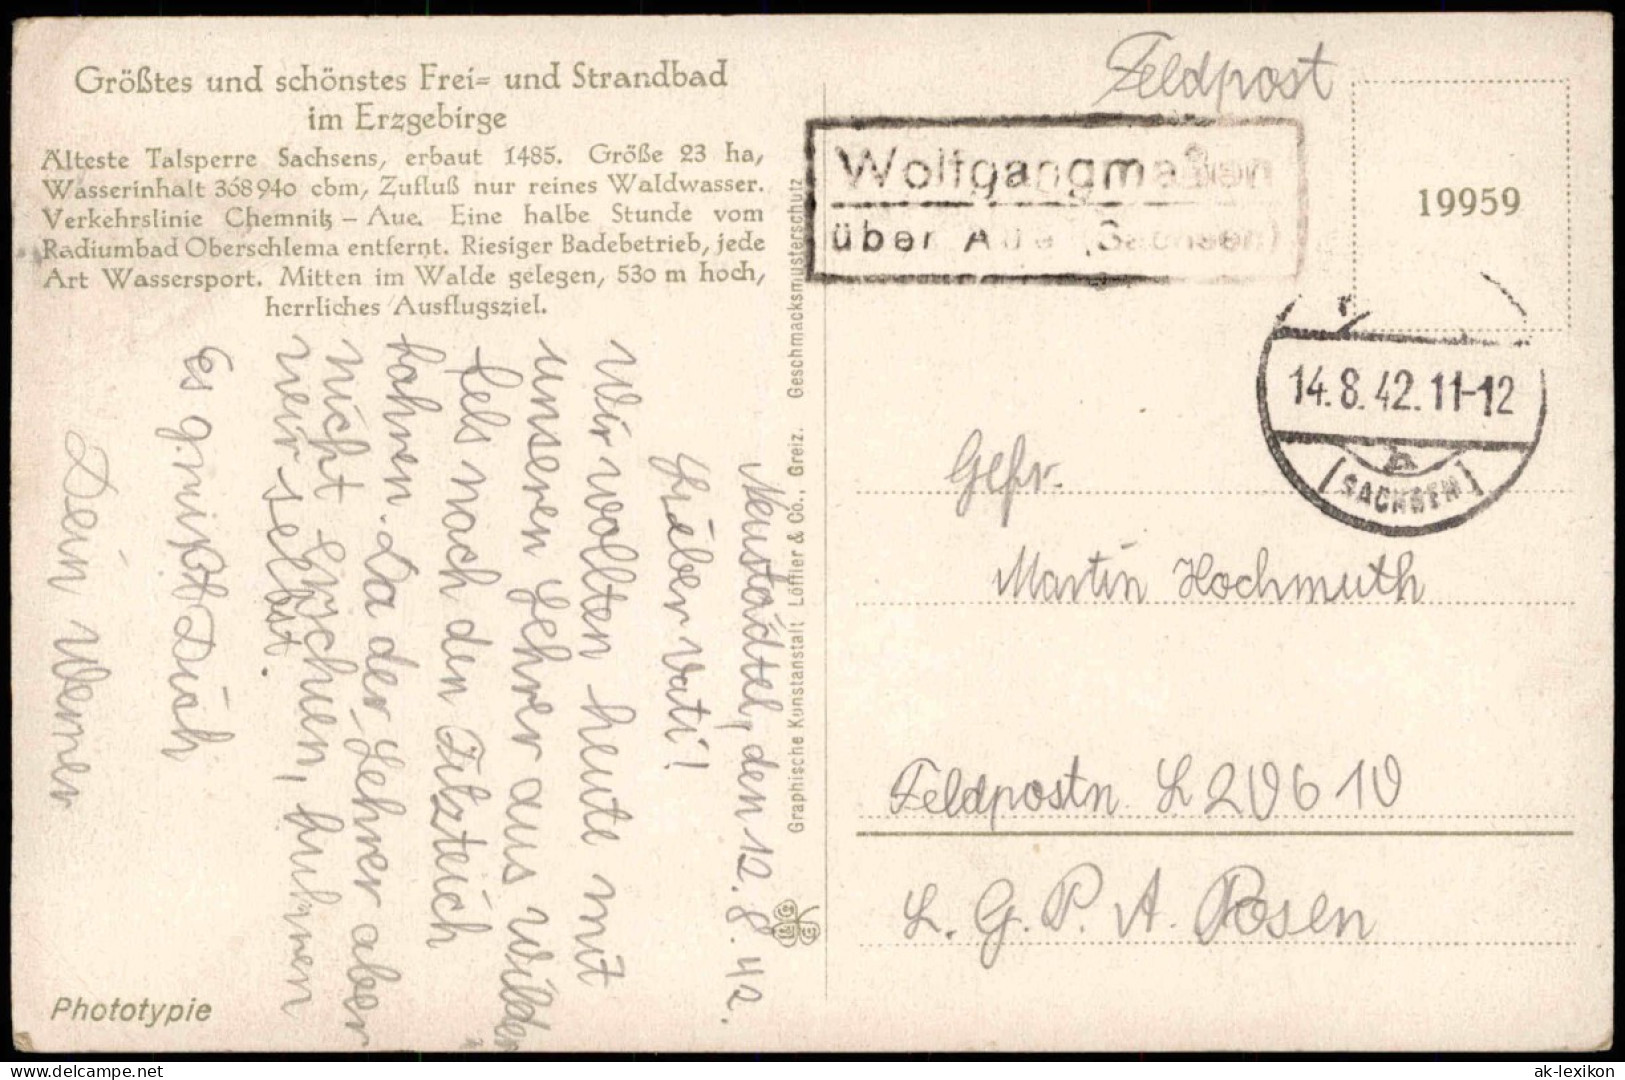 Größtes und schönstes Frei= und Strandbad
im Erzgebirge
Älteste Talsperre Sachsens, erbaut 1485. Größe 23 ha,
Wasserinhalt 368940 cbm, Zufluß nur reines Waldwasser.
Verkehrslinie Chemnitz – Aue. Eine halbe Stunde vom
Radiumbad Oberschlema entfernt. Riesiger Badebetrieb, jede
Art Wassersport. Mitten im Walde gelegen, 530 m hoch,
herrliches Ausflugsziel.
Neustädtel, den 12. 8. 42.
Lieber Vati!
Wir wollten heute mit
unseren Lehrer aus Wilden
fels nach den Filzteich
fahren. Da der Lehrer aber
nicht
wir selbst.
Es grüßt Dich
Dein Werner
Phototypie
Graphische Kunstanstalt Löffler & Co., Greiz. Geschmacksmusterschutz
Feldpost
Wolfgangmaßen
über Aue (Sachsen)
19959
14.8.42.11-12
b
(SACHSEN)
Gefr.
Martin Hochmuth
Feldpostn. L 20610
L. G. P. A. Posen
ak-lexikon.de